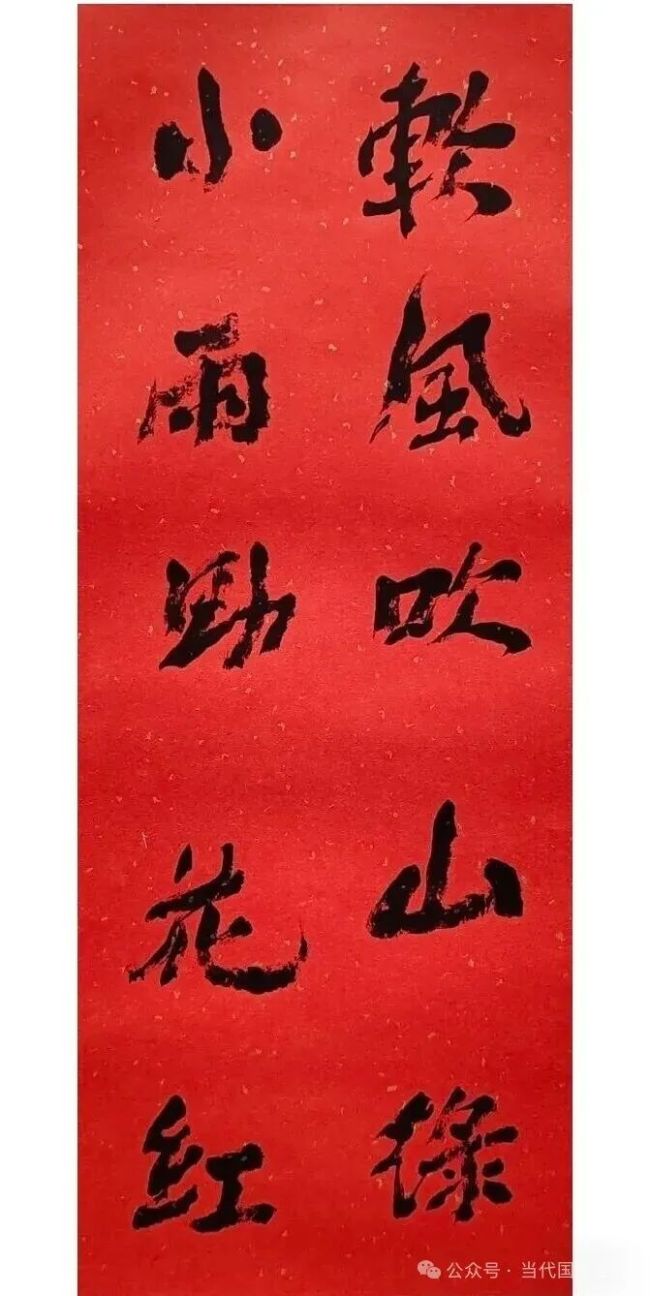 軟風吹山綠
小雨助花紅
公众号 · 当代国